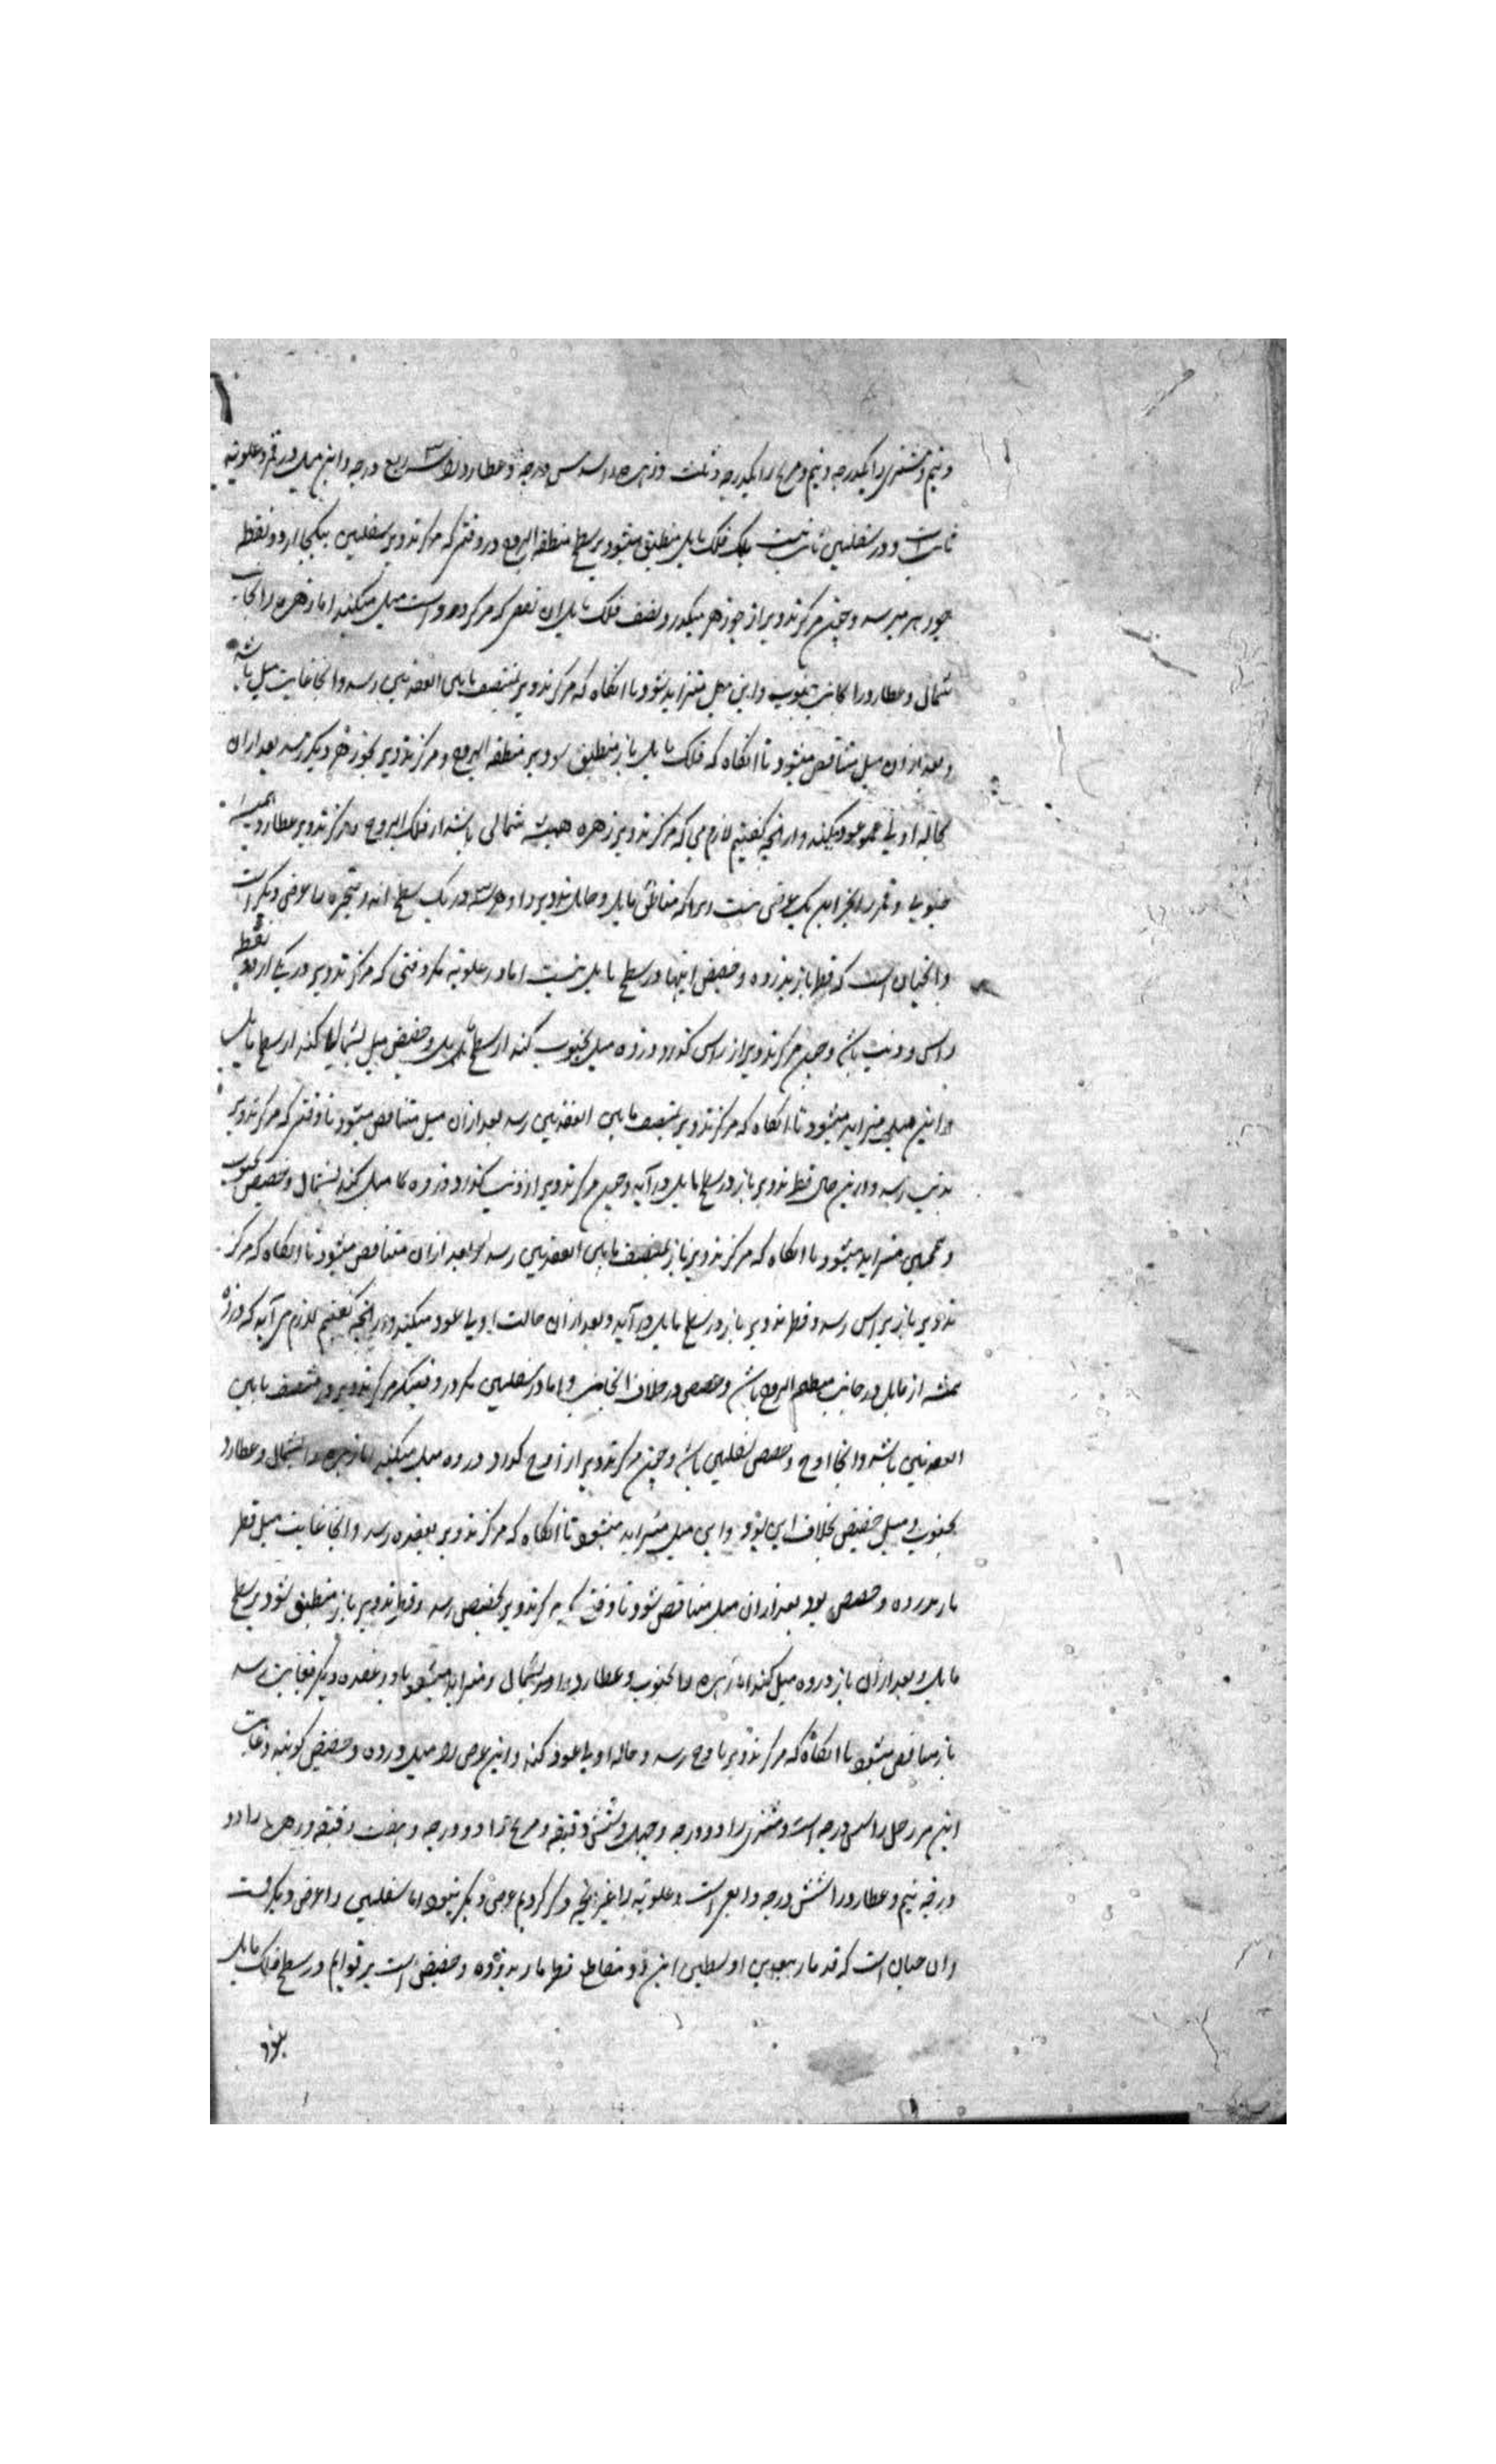 ونیم و مشتری را یکدرجه ونیم و مریخ را یکدرجه و ثلث و زهره را سدس درجه و عطارد را سه ربع درجه و این میل در قمر و علویه
ثابت است و در سفلیین ثابت نیست بلک فلک مایل منطبق میشود بر سطح منطقه البروج در وقتی که مرکز تدویر سفلیین بیکی از دو نقطه
جوزهر میرسد و چون مرکز تدویر از جوزهر میگذرد نصف فلک مایل ان نصف که مرکز در وست میل میکند اما زهره را بجانب
شمال و عطارد را بجانب جنوب و این میل متزاید شود تا انکاه که مرکز تدویر بمنتصف مابین العقدتین رسد و انجا غایت میل باشد
و بعد از ان میل متناقص میشود تا انکاه که فلک مایل باز منطبق شود بر منطقه البروج و مرکز تدویر بجوزهر دیگر رسد بعد از ان
حاله اولی عود میکند و از انچه کفتیم لازم می که مرکز تدویر زهره همیشه شمالی باشد از فلک البروج و مرکز تدویر عطارد همیشه
جنوبی و قمر را بجز این یک عرض نیست زیرا که مناطق مایل و حامل و تدویر او هر سه در یک سطح اند و متحیره را عرضی دیکر است
و انچنان است که قطر مار بذروه و حضیض اینها در سطح مایل نیست اما در علویه مکر وقتی که مرکز تدویر در یکی از دو نقطه
راس و ذنب باشد و چون مرکز تدویر از راس کذرد ذروه میل بجنوب کند از سطح مایل و حضیض میل بشمال کند از سطح مایل
و این میل متزاید میشود تا انکاه که مرکز تدویر بمنتصف مابین العقدتین رسد بعد از ان میل متناقص میشود تا وقتی که مرکز تدویر
بذنب رسد و درین حال قطر تدویر باز در سطح مایل در آید و چون مرکز تدویر از ذنب کذرد ذروه میل کند بشمال و حضیض بجنوب
و همچنین متزاید میشود تا انکاه که مرکز تدویر باز بمنتصف مابین العقدتین رسد و بعد از ان متناقص میشود تا انکاه که مرکز
تدویر باز براس رسد و قطر تدویر باز در سطح مایل در آید و بعد از ان حالت اولی عود میکند و از انچه کفتیم لازم می آید که ذروه
همیشه از مایل در جانب منطقه البروج باشد و حضیض در خلاف انجانب و اما در سفلیین مکر در وقتیکه مرکز تدویر در منتصف مابین
العقدتین باشد و انجا اوج و حضیض سفلیین باشد و چون مرکز تدویر از اوج کذرد ذروه میل میکند اما زهره را بشمال و عطارد
بجنوب و میل حضیض بخلاف این بود و این میل متزاید میشود تا انکاه که مرکز تدویر بعقده رسد و انجا غایت میل قطر
مار بذروه و حضیض بود بعد از ان میل متناقص شود تا وقتی که مرکز تدویر بحضیض رسد و قطر تدویر باز منطبق شود بر سطح
مایل و بعد از ان باز ذروه میل کند اما زهره را بجنوب و عطارد را بشمال و متزاید میشود تا در عقده دیکر بغایت رسد
باز متناقص میشود تا انکاه که مرکز تدویر باوج رسد و حاله اولی عود کند و این عرض را میل ذروه و حضیض کویند و غایت
این مر زحل را سی درجه است و مشتری را دو درجه و چهل وشش دقیقه و مریخ را دو درجه و هفت دقیقه و زهره را دو
درجه نیم و عطارد را شش درجه و ربعی است و علویه را غیر انچه ذکر کردیم عرضی دیکر نبود اما سفلیین را عرضی دیکر است
و ان چنان است که قطر مار ببعدین اوسطین این دو متقاطع قطر مار بذروه و حضیض است بر قوایم در سطح فلک مایل